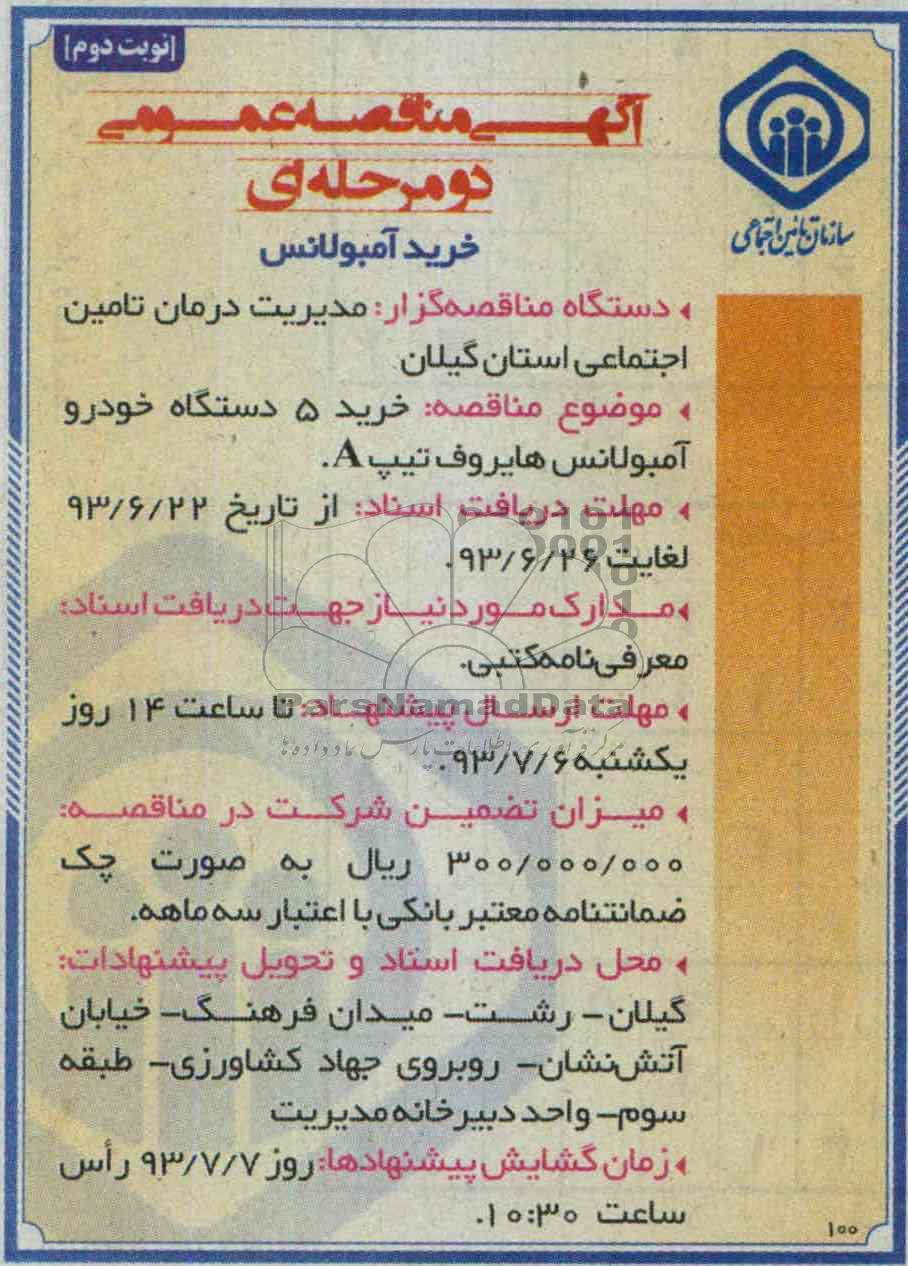 [نوبت دوم]
آگهی مناقصه عمومی
دو مرحله‌ای
خرید آمبولانس
سازمان تامین اجتماعی
دستگاه مناقصه‌گزار: مدیریت درمان تامین
اجتماعی استان گیلان
موضوع مناقصه: خرید ۵ دستگاه خودرو
آمبولانس هایروف تیپ A.
مهلت دریافت اسناد: از تاریخ ۹۳/۶/۲۲
لغایت ۹۳/۶/۲۶.
مدارک مورد نیاز جهت دریافت اسناد:
معرفی‌نامه کتبی.
مهلت ارسال پیشنهاد: تا ساعت ۱۴ روز
ParsNamadData
یکشنبه ۹۳/۷/۶.
میزان تضمین شرکت در مناقصه:
۳۰۰/۰۰۰/۰۰۰ ریال به صورت چک
ضمانتنامه معتبر بانکی با اعتبار سه ماهه.
محل دریافت اسناد و تحویل پیشنهادات:
گیلان – رشت – میدان فرهنگ – خیابان
آتش‌نشان – روبروی جهاد کشاورزی – طبقه
سوم – واحد دبیرخانه مدیریت
زمان گشایش پیشنهادها: روز ۹۳/۷/۷ رأس
ساعت ۱۰:۳۰.
۱۰۰